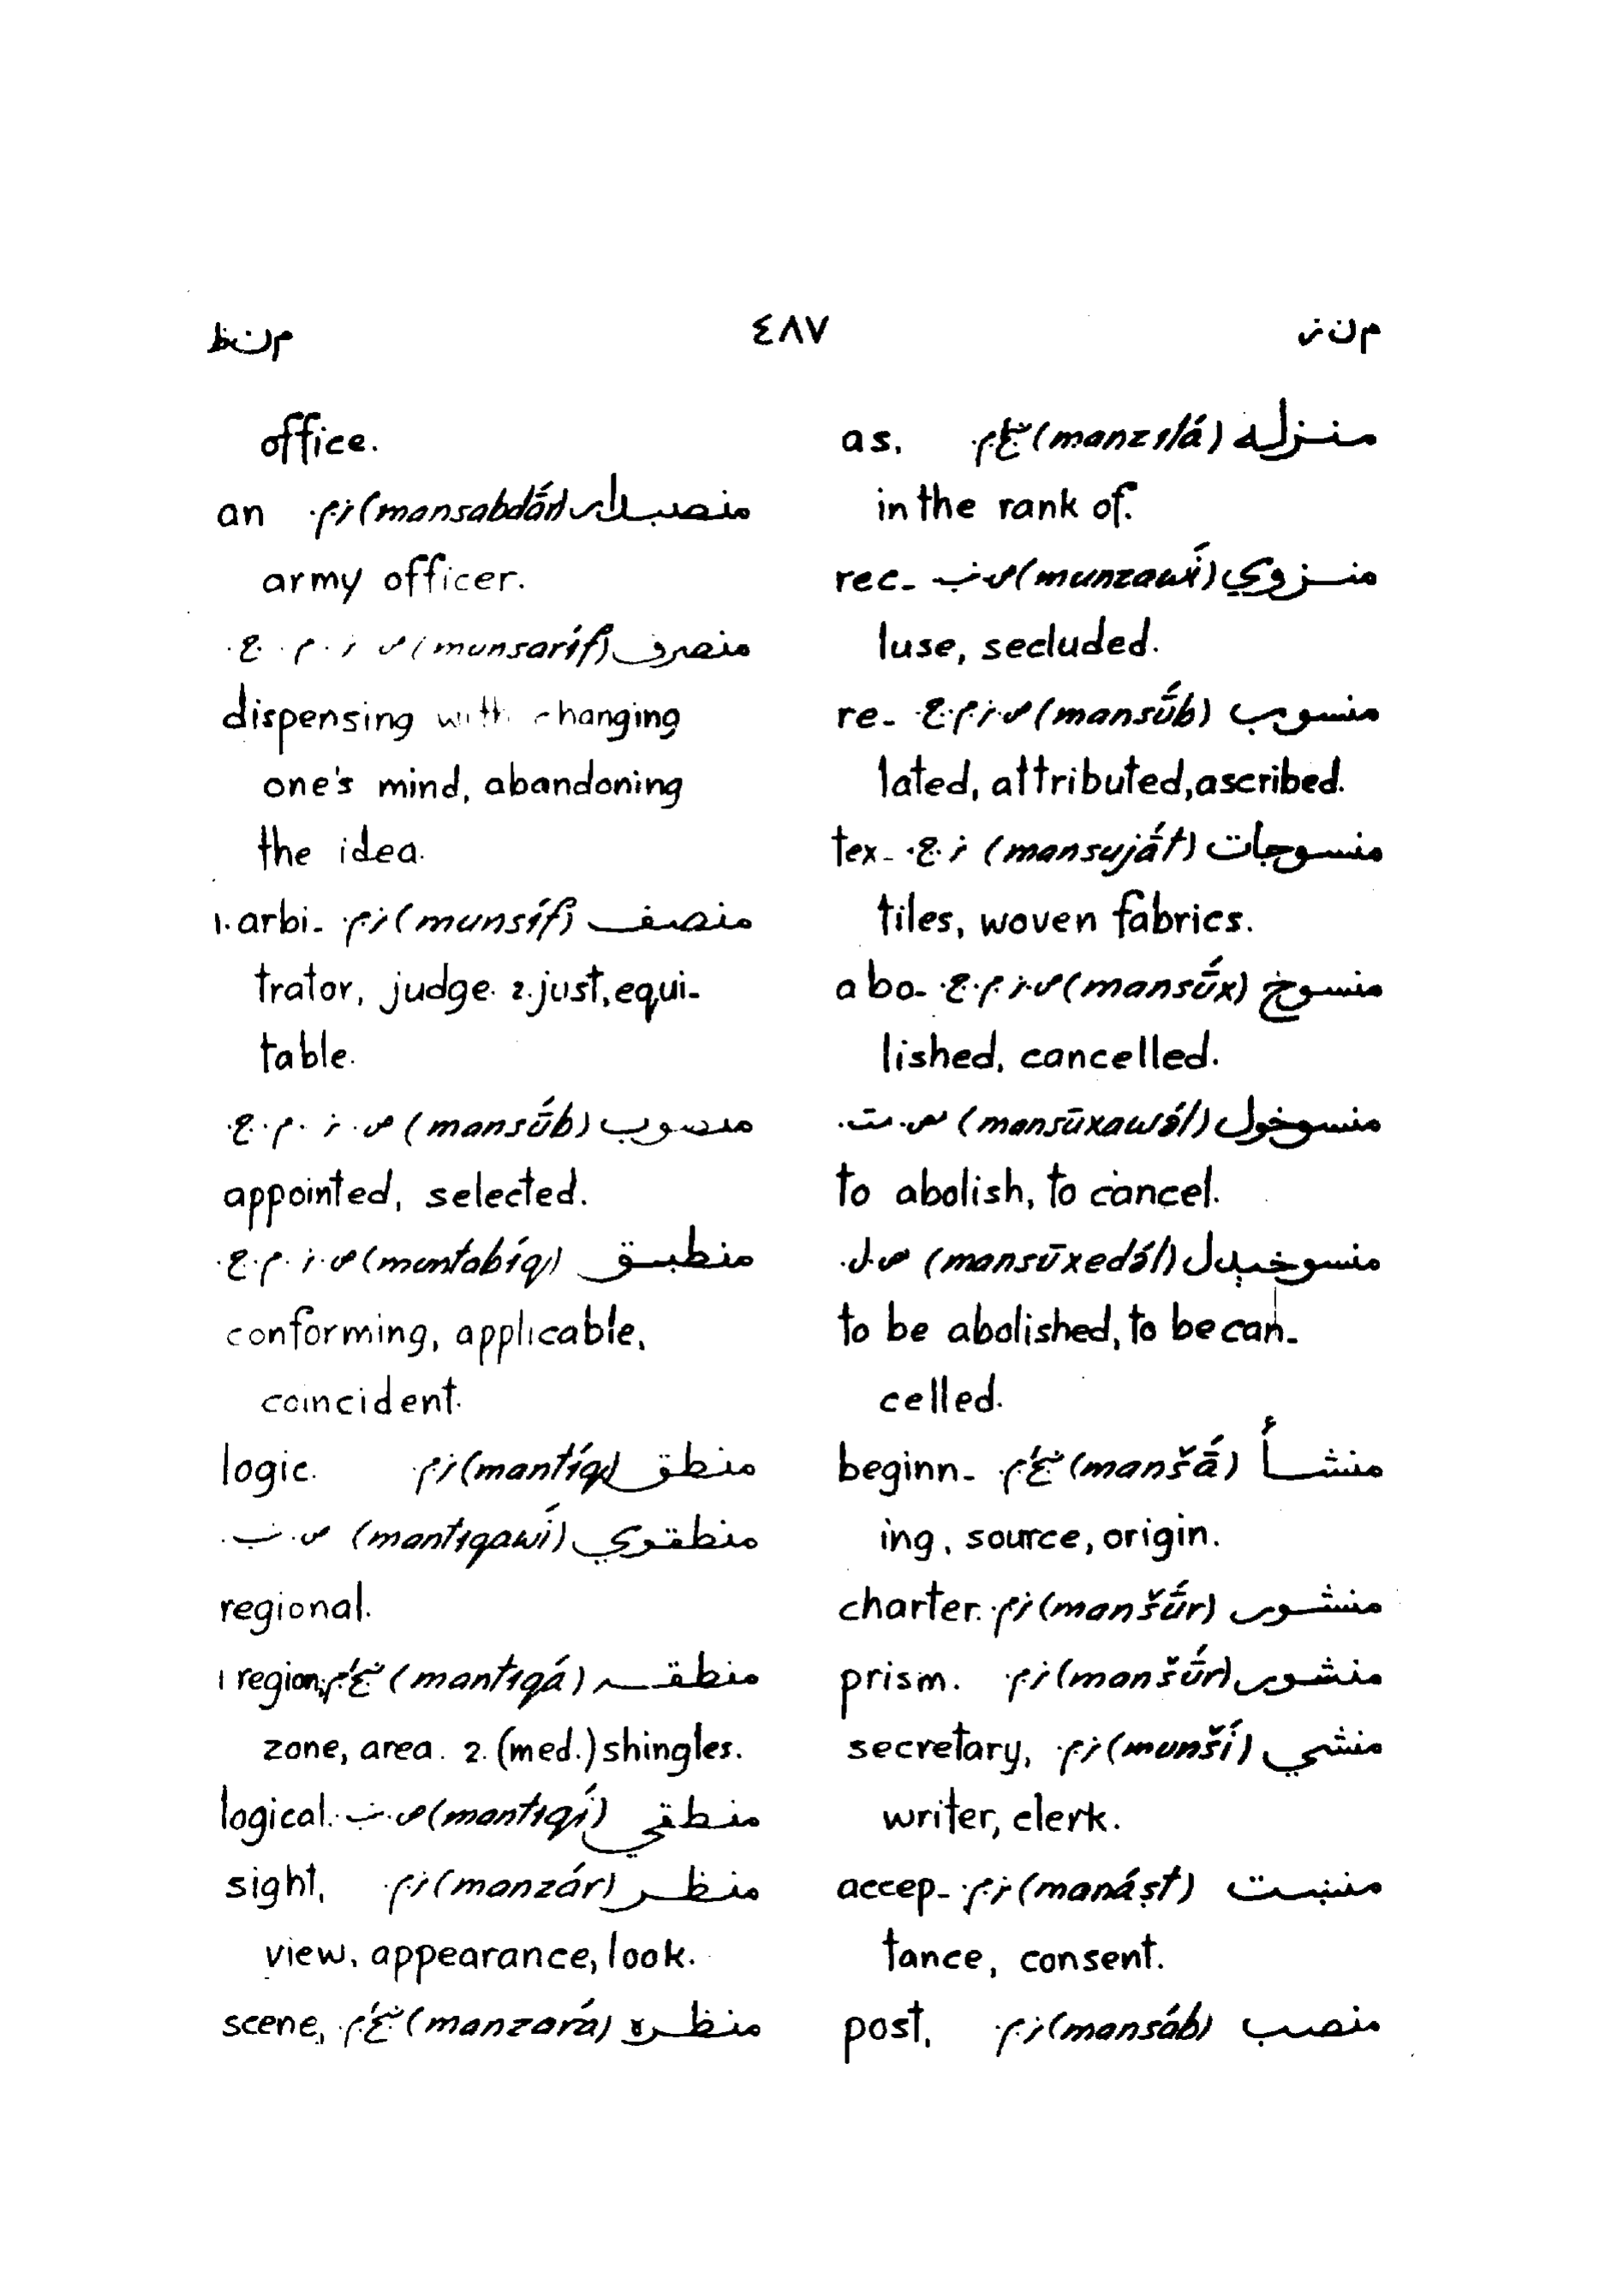 منز
٤٨٧
منظ
منزله (manzılá) ښځ.م. as,
in the rank of.
منزوي (munzawí) ص.نب. rec-
luse, secluded.
منسوب (mansū́b) ص.ز.م.ج. re-
lated, attributed, ascribed.
منسوجات (mansujā́t) ز.ج. tex-
tiles, woven fabrics.
منسوخ (mansū́x) ص.ز.م.ج. abo-
lished, cancelled.
منسوخول (mansūxawə́l) ص.مت.
to abolish, to cancel.
منسوخېدل (mansūxedə́l) ص.ل.
to be abolished, to be can-
celled.
منشأ (manšā́) ښځ.م. beginn-
ing, source, origin.
منشور (manšū́r) ز.م. charter.
منشور (manšū́r) ز.م. prism.
منشي (munší) ز.م. secretary,
writer, clerk.
منښت (manáṣt) ز.م. accep-
tance, consent.
منصب (mansáb) ز.م. post,
office.
منصبدار (mansabdā́r) ز.م. an
army officer.
منصرف (munsaríf) ص.ز.م.ج.
dispensing with changing
one's mind, abandoning
the idea.
منصف (munsíf) ز.م. 1. arbi-
trator, judge. 2. just, equi-
table.
منصوب (mansū́b) ص.ز.م.ج.
appointed, selected.
منطبق (muntabíq) ص.ز.م.ج.
conforming, applicable,
coincident.
منطق (mantíq) ز.م. logic.
منطقوي (mantıqawí) ص.نب.
regional.
منطقه (mantıqá) ښځ.م. 1 region,
zone, area. 2. (med.) shingles.
منطقي (mantıqí) ص.نب. logical.
منظر (manzár) ز.م. sight,
view, appearance, look.
منظره (manzará) ښځ.م. scene,